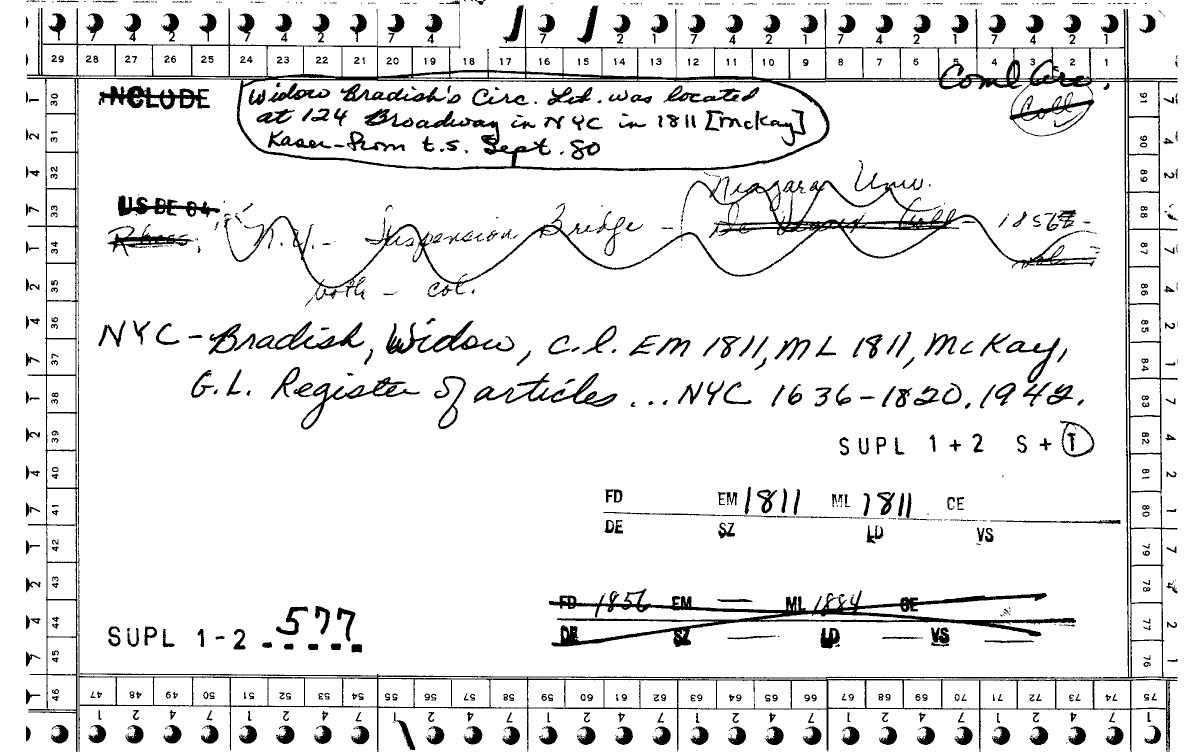 7 4 2 1 7 4 2 1 7 4 7 2 1 7 4 2 1 7 4 2 1 7 4 2 1
29 28 27 26 25 24 23 22 21 20 19 18 17 16 15 14 13 12 11 10 9 8 7 6 5 4 3 2 1
Coml Circ.
Coll
INCLUDE
Widow Bradish's Circ. Lib. was located
at 124 Broadway in NYC in 1811 [McKay]
Kaser-from t.s. Sept. 80
Niagara Univ.
USDE 84
Rhees, N.Y. - Suspension Bridge - Coll - 1856
both - col.
NYC - Bradish, Widow, c.l. EM 1811, ML 1811, McKay,
G.L. Register of articles ... NYC 1636-1820. 1942.
SUPL 1 + 2 S + T
FD EM 1811 ML 1811 CE
DE SZ LD VS
FD 1856 EM — ML 1884 CE
DE SZ — LD — VS —
SUPL 1-2 577
30 31 32 33 34 35 36 37 38 39 40 41 42 43 44 45 46
91 90 89 88 87 86 85 84 83 82 81 80 79 78 77 76 75
47 48 49 50 51 52 53 54 55 56 57 58 59 60 61 62 63 64 65 66 67 68 69 70 71 72 73 74